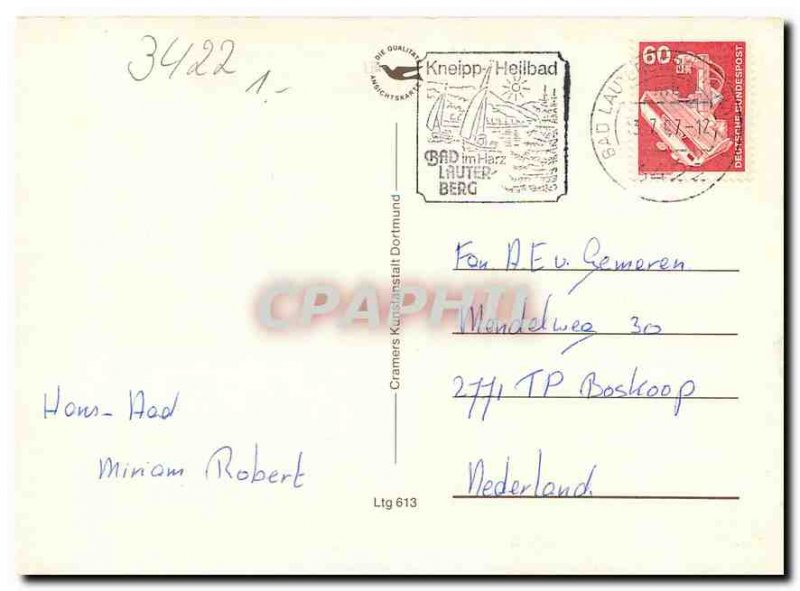 3422
1.-
DIE QUALITÄTS
ANSICHTSKARTE
Kneipp-Heilbad
BAD im Harz
LAUTER-
BERG
60
DEUTSCHE BUNDESPOST
BAD
7.87-12
Cramers Kunstanstalt Dortmund
CPAPHIL
Fam A E v. Gemeren
Mendelweg 30
2771 TP Boskoop
Nederland
Hans- Aad
Miriam Robert
Ltg 613